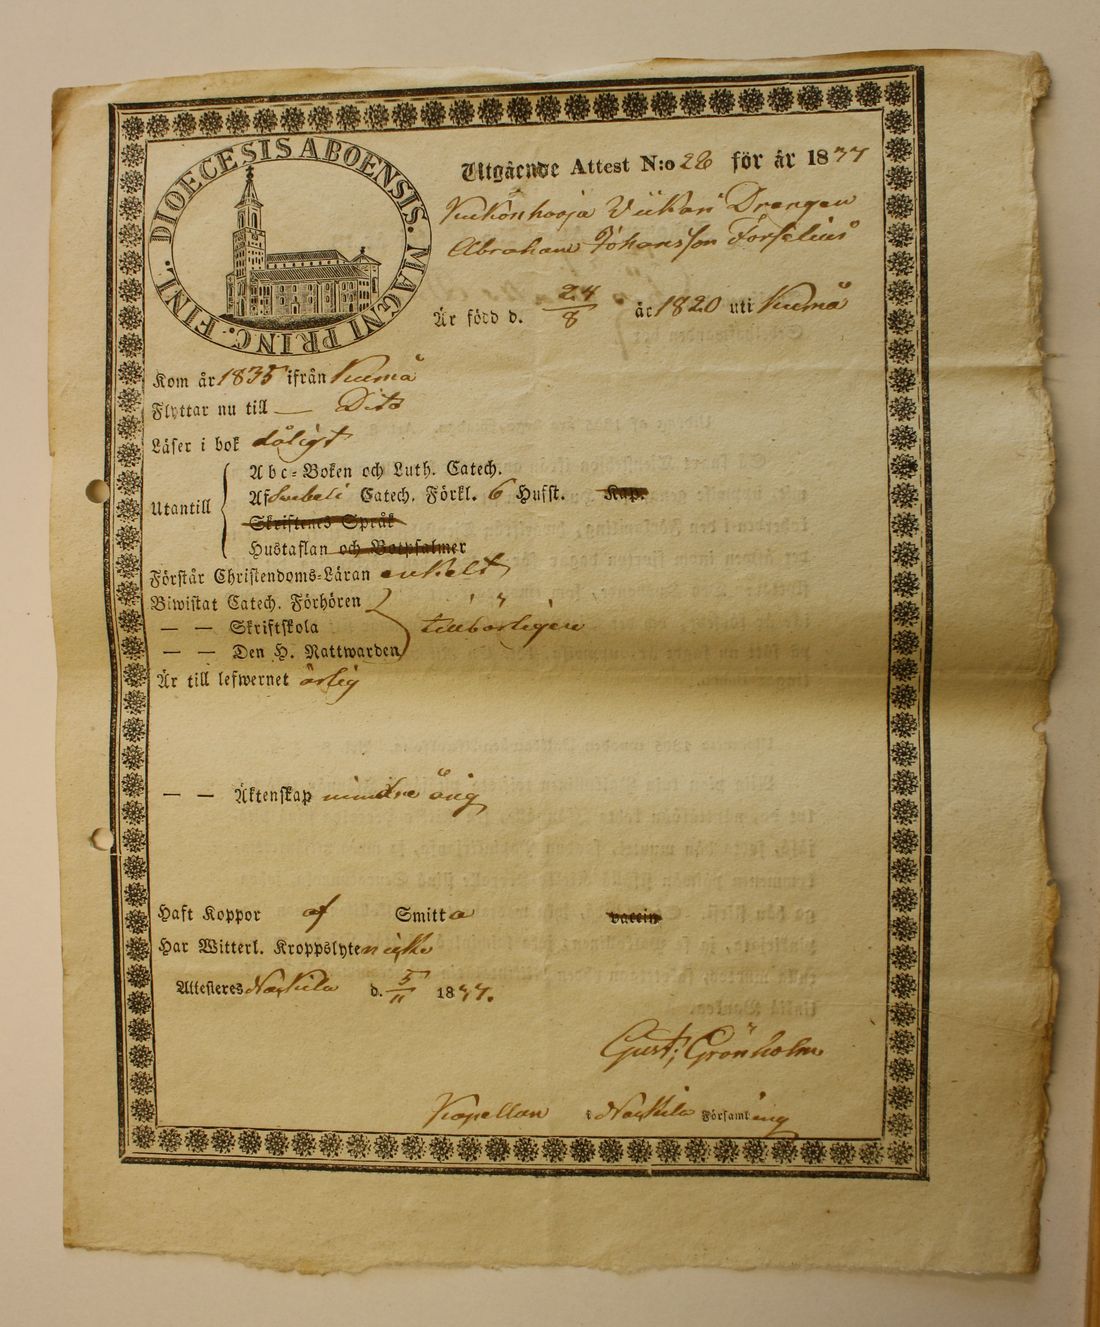 DIOECESIS ABOENSIS. MAGNI PRINC. FINL.
Utgående Attest N:o 26 för år 1837
Drengen
Abraham Johansson Forselius
Är född d. 24/8 år 1820 uti Kiumå
Kom år 1835 ifrån Kiumå
Flyttar nu till — Dito
Läser i bok dåligt
Utantill
Abc-Boken och Luth. Catech.
Af Svebeli Catech. Förkl. 6 Hufst. Kap.
Skriftenes Språk
Hustaflan och Botpsalmer
Förstår Christendoms-Läran enkelt
Biwistat Catech. Förhören
— — Skriftskola tillbörligen
— — Den H. Nattwarden
Är till lefwernet ärlig
— — Äktenskap mindre årig
Haft Koppor af Smitta vaccin
Har Witterl. Kroppslyte
Attesteres Nakkila d. 5/11 1837.
Gust; Grönholm
Kapellan i Nakkila Församling